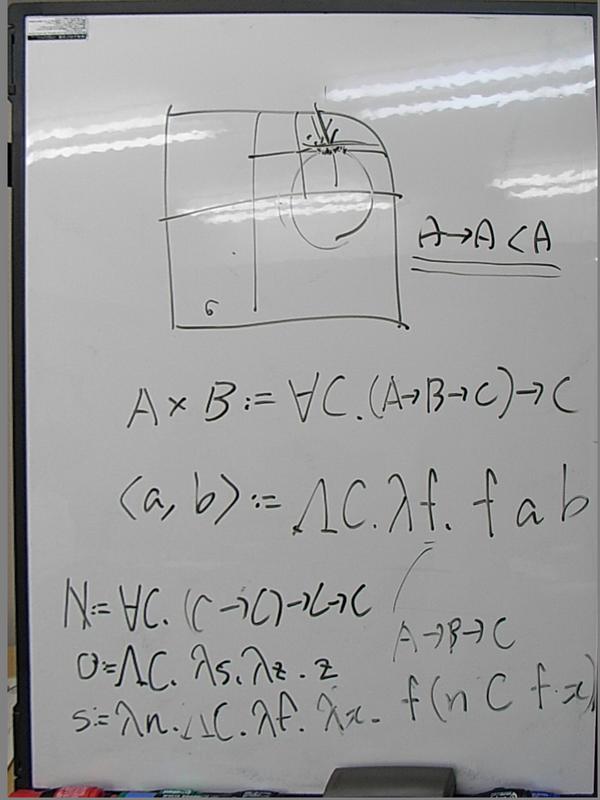 6
A→A<A
A×B:=∀C.(A→B→C)→C
⟨a,b⟩:=ΛC.λf.f a b
N:=∀C.(C→C)→C→C
A→B→C
0:=ΛC.λs.λz.z
s:=λn.ΛC.λf.λx.f(n C f x)